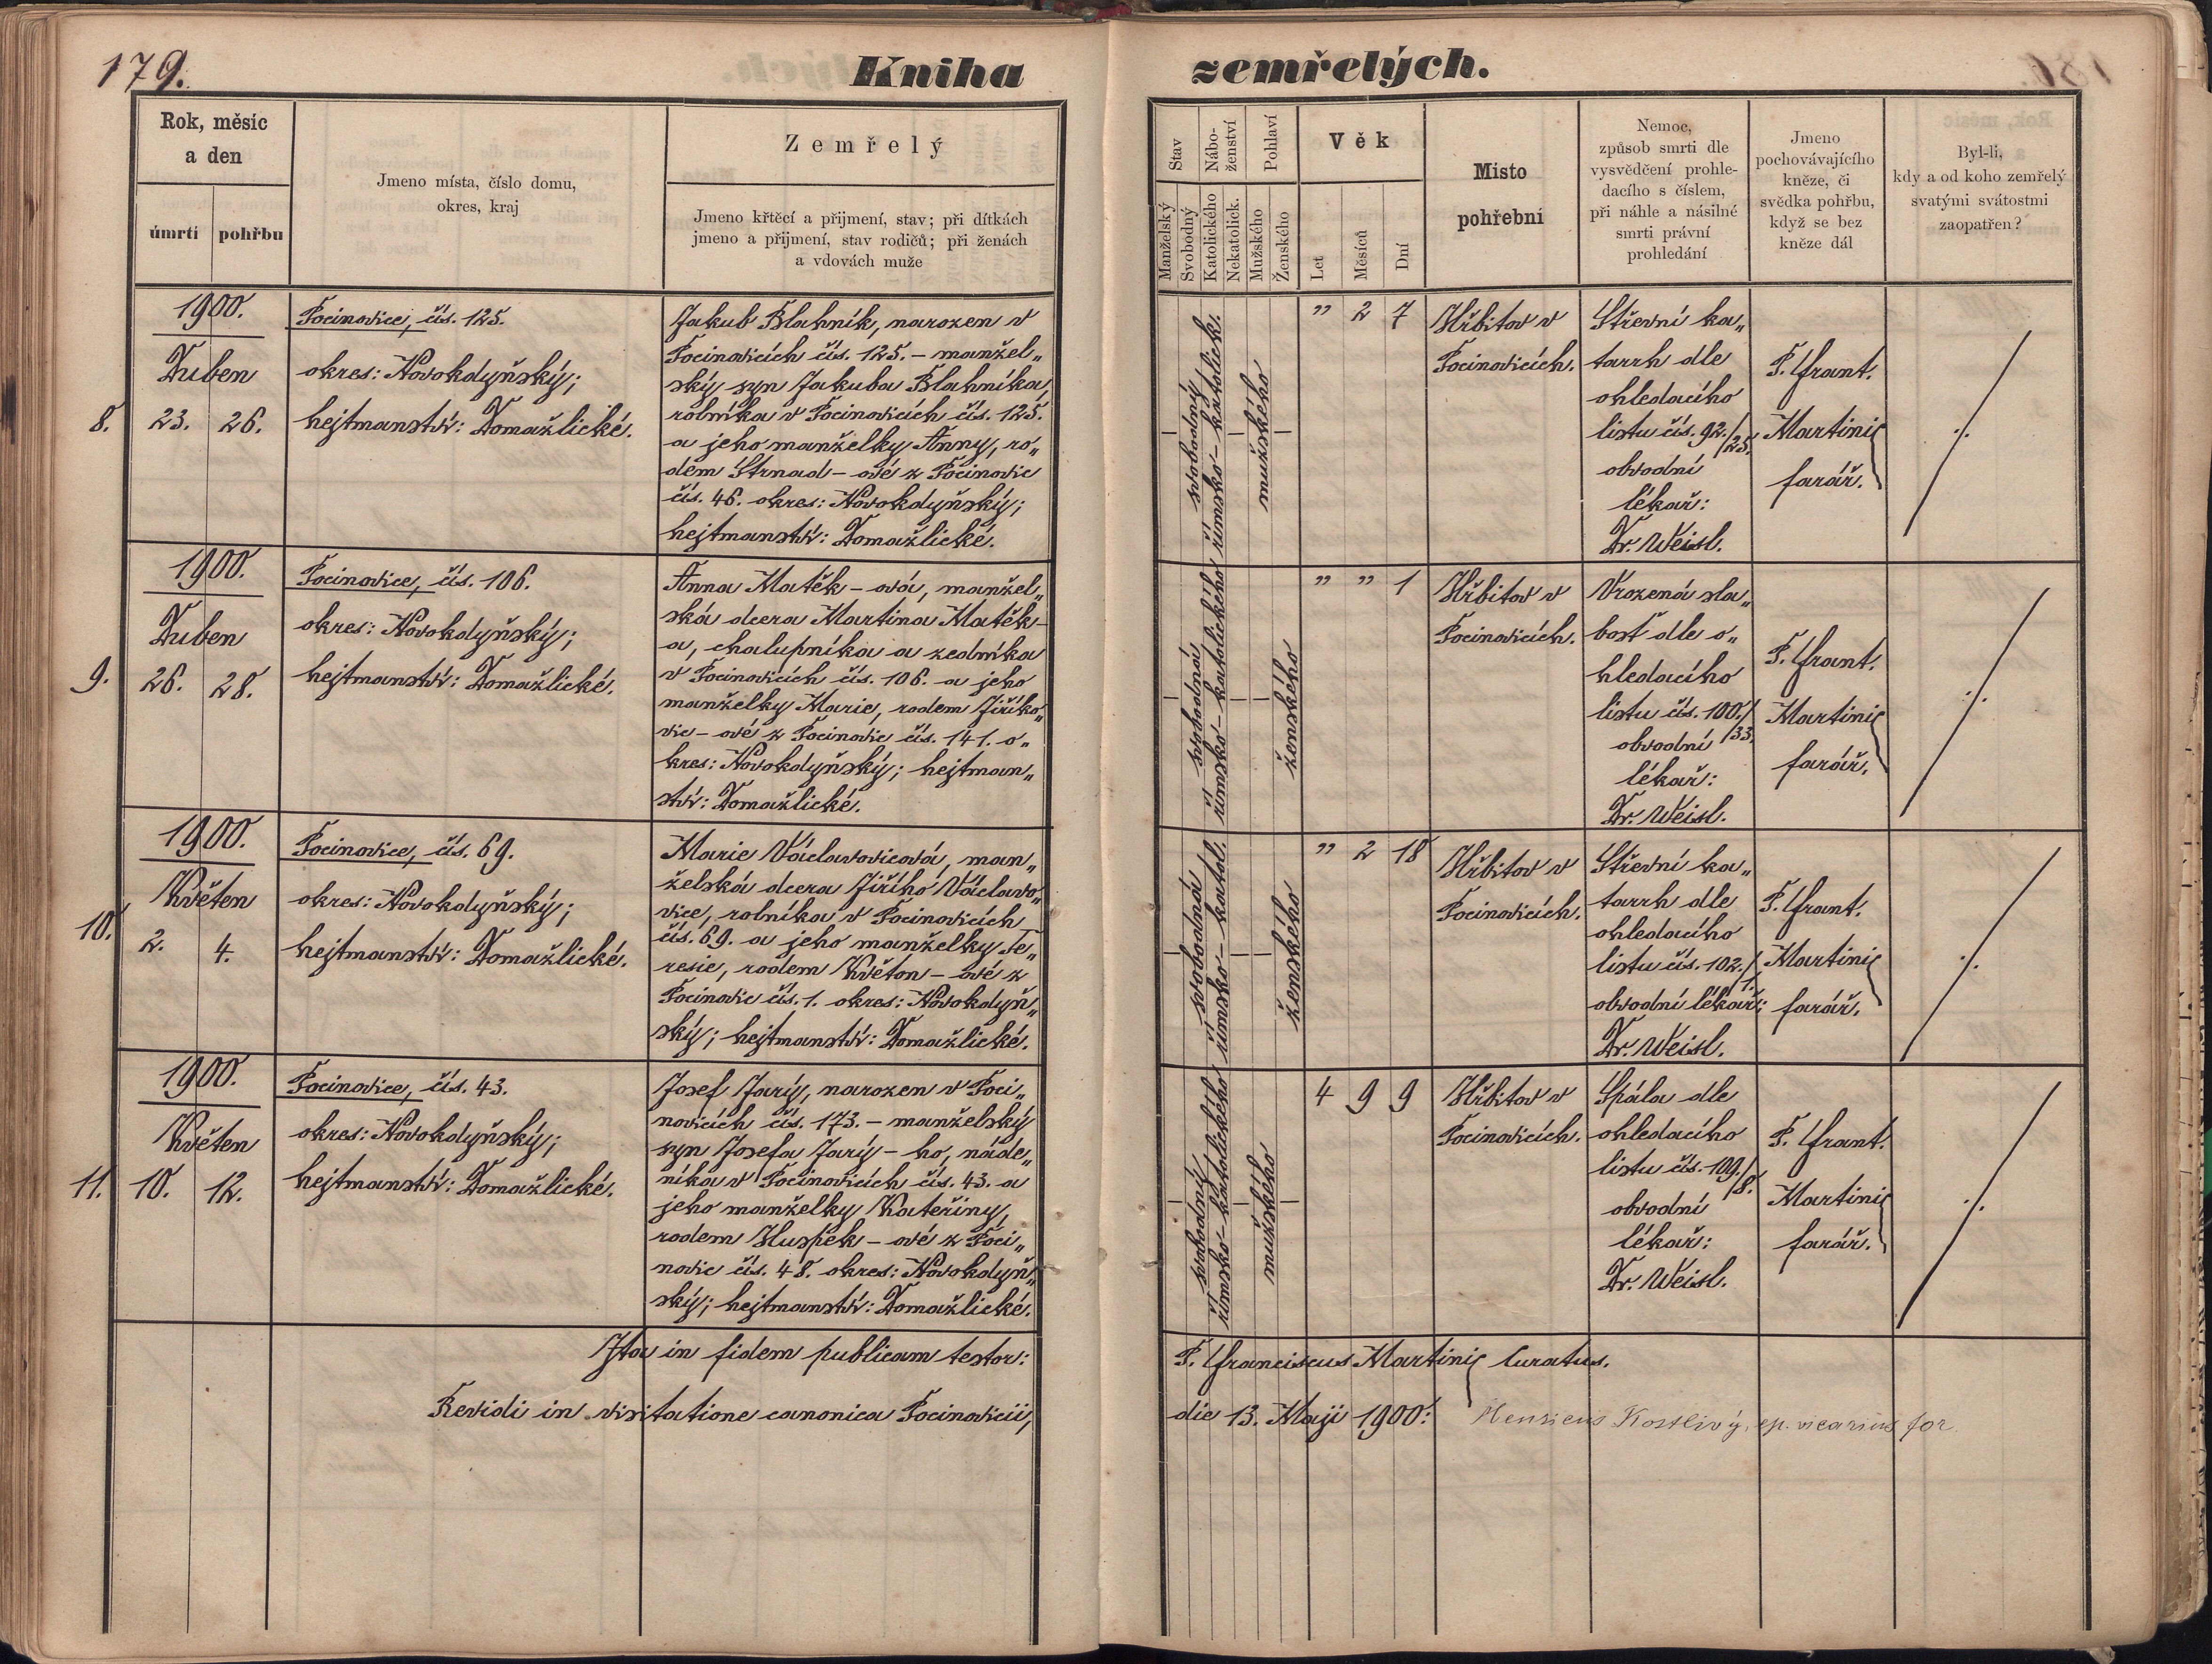 179.
Kniha
zemřelých.
Rok, měsíc
a den
úmrtí
pohřbu
Jmeno místa, číslo domu,
okres, kraj
Zemřelý
Jmeno křtěcí a přijmení, stav; při dítkách
jmeno a přijmení, stav rodičů; při ženách
a vdovách muže
Stav
Manželský
Svobodný
Nábo-
ženství
Katolického
Nekatolick.
Pohlaví
Mužského
Ženského
Věk
Let
Měsíců
Dní
Místo
pohřební
Nemoc,
způsob smrti dle
vysvědčení prohle-
dacího s číslem,
při náhle a násilné
smrti právní
prohledání
Jmeno
pochovávajícího
kněze, či
svědka pohřbu,
když se bez
kněze dál
Byl-li,
kdy a od koho zemřelý
svatými svátostmi
zaopatřen?
8.
1900.
Duben
23. 26.
Pocinovice, čís. 125.
okres: Novokdyňský;
hejtmanství: Domažlické.
Jakub Blahník, narozen v
Pocinovicích čís. 125. – manžel„
ský syn Jakuba Blahníka,
rolníka v Pocinovicích čís. 125.
a jeho manželky Anny, ro„
dem Strnad – ové z Pocinovic
čís. 46. okres: Novokdyňský;
hejtmanství: Domažlické.
svobodný
římsko – katolick.
mužského
" 2 7
Hřbitov v
Pocinovicích.
Střevní ka„
tarrh dle
ohledacího
listu čís. 92./25.
obvodní
lékař:
Dr. Weisl.
P. Frant.
Martinic
farář.
./.
9.
1900.
Duben
26. 28.
Pocinovice, čís. 106.
okres: Novokdyňský;
hejtmanství: Domažlické.
Anna Matěk – ová, manžel„
ská dcera Martina Matěk –
a, chalupníka a zedníka
v Pocinovicích čís. 106. a jeho
manželky Marie, rodem Jiříko„
vic – ové z Pocinovic čís. 141. o„
kres: Novokdyňský; hejtman„
ství: Domažlické.
svobodná
římsko – katolického
ženského
" " 1
Hřbitov v
Pocinovicích.
Vrozená sla„
bosť dle o„
hledacího
listu čís. 100./33.
obvodní
lékař:
Dr. Weisl.
P. Frant.
Martinic
farář.
./.
10.
1900.
Květen
2. 4.
Pocinovice, čís. 69.
okres: Novokdyňský;
hejtmanství: Domažlické.
Marie Václavovicová, man„
želská dcera Jiřího Václavo„
vice, rolníka v Pocinovicích
čís. 69. a jeho manželky Te„
resie, rodem Květon – ové z
Pocinovic čís. 1. okres: Novokdyň„
ský; hejtmanství: Domažlické.
svobodná
římsko – katol.
ženského
" 2 18
Hřbitov v
Pocinovicích.
Střevní ka„
tarrh dle
ohledacího
listu čís. 102./1.
obvodní lékař:
Dr. Weisl.
P. Frant.
Martinic
farář.
./.
11.
1900.
Květen
10. 12.
Pocinovice, čís. 43.
okres: Novokdyňský;
hejtmanství: Domažlické.
Josef Jarý, narozen v Poci„
novicích čís. 173. – manželský
syn Josefa Jarý – ho, náde„
níka v Pocinovicích čís. 43. a
jeho manželky Kateřiny,
rodem Huspek – ové z Poci„
novic čís. 48. okres: Novokdyň„
ský; hejtmanství: Domažlické.
svobodný
římsko – katolického
mužského
4 9 9
Hřbitov v
Pocinovicích.
Spála dle
ohledacího
listu čís. 109./8.
obvodní
lékař:
Dr. Weisl.
P. Frant.
Martinic
farář.
./.
Ita in fidem publicam testor: P. Franciscus Martinic Curatus.
Revidi in visitatione canonica Pocinovicii, die 13. Maji 1900: Kostlivý, ep. vicarius for